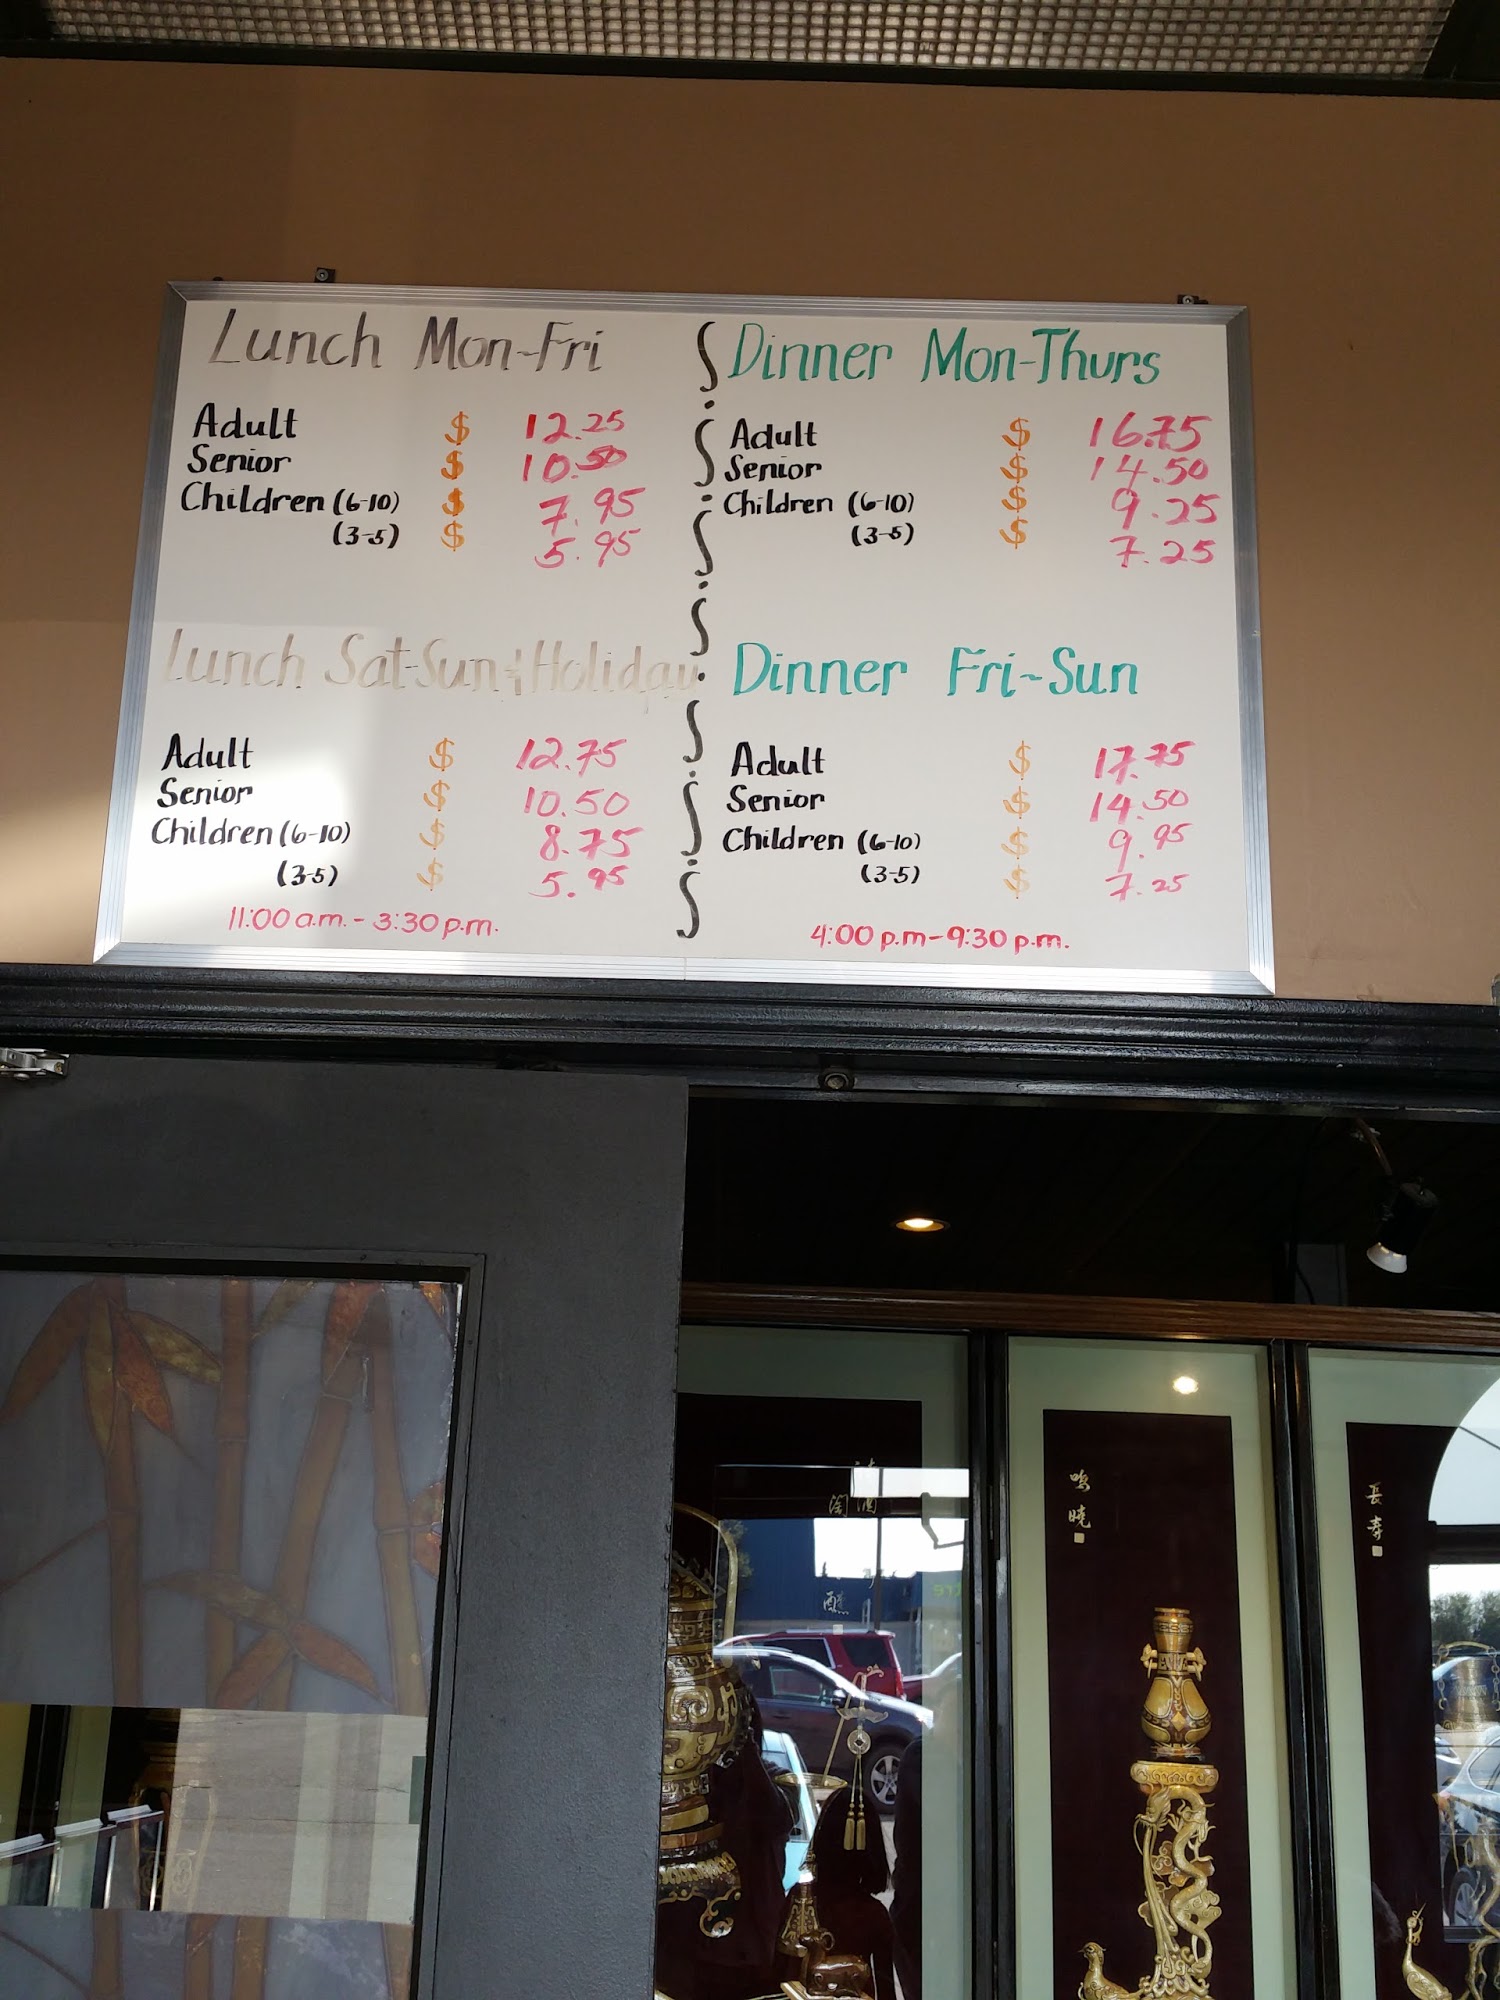 Lunch Mon-Fri
Adult $ 12.25
Senior $ 10.50
Children (6-10) $ 7.95
(3-5) $ 5.95
Lunch Sat-Sun & Holiday
Adult $ 12.75
Senior $ 10.50
Children (6-10) $ 8.75
(3-5) $ 5.95
11:00 a.m. - 3:30 p.m.
Dinner Mon-Thurs
Adult $ 16.75
Senior $ 14.50
Children (6-10) $ 9.25
(3-5) $ 7.25
Dinner Fri-Sun
Adult $ 17.75
Senior $ 14.50
Children (6-10) $ 9.95
(3-5) $ 7.25
4:00 p.m-9:30 p.m.
鳴曉
長壽